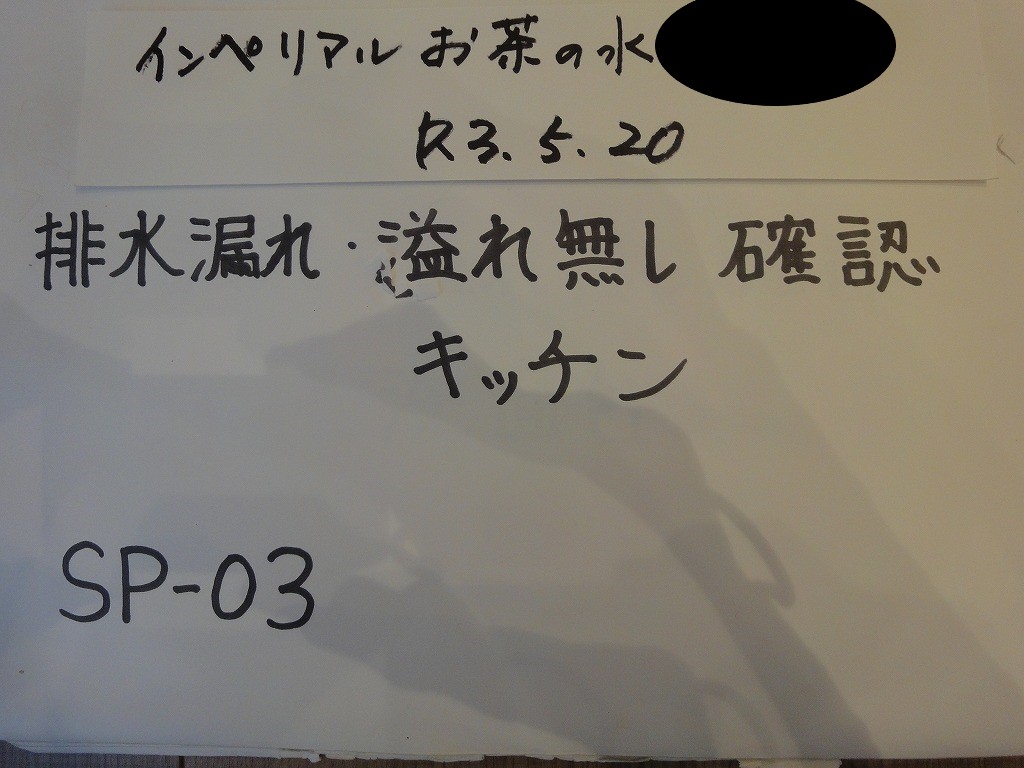 インペリアルお茶の水
R3.5.20
排水漏れ・溢れ無し確認
キッチン
SP-03